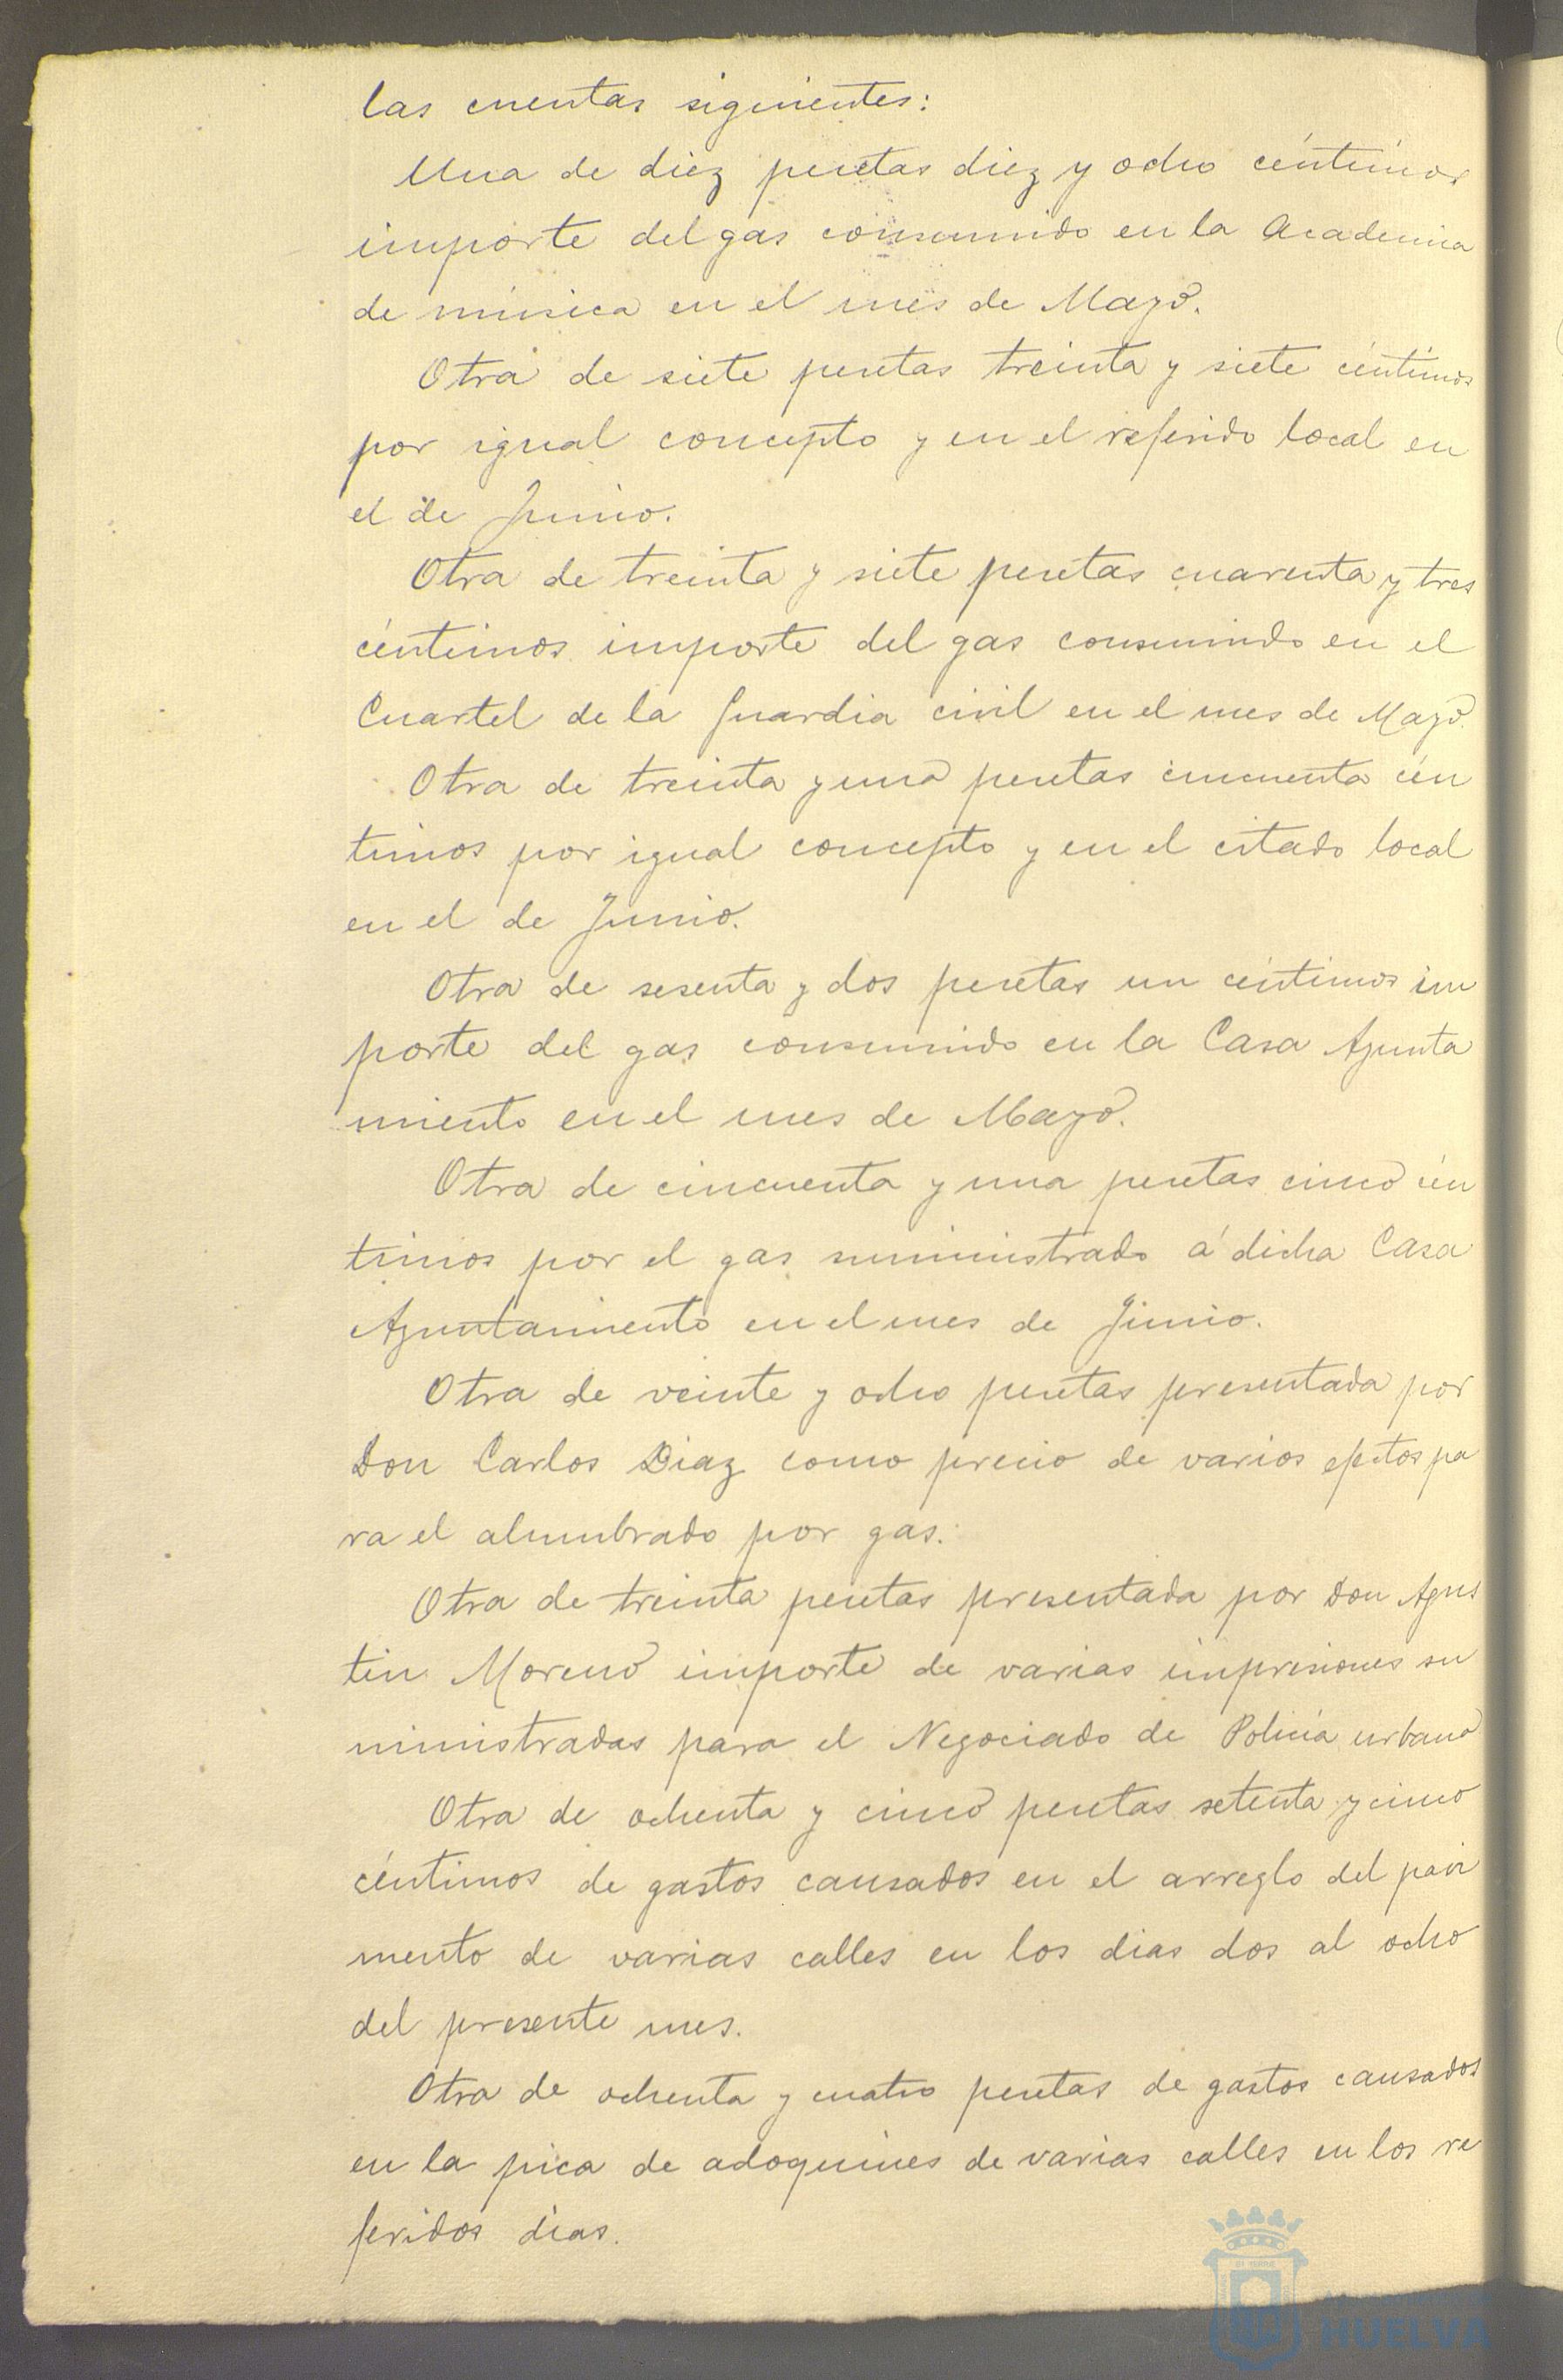 las cuentas siguientes:
Una de diez pesetas diez y ocho céntimos
importe del gas consumido en la Academia
de música en el mes de Mayo.
Otra de siete pesetas treinta y siete céntimos
por igual concepto y en el referido local en
el de Junio.
Otra de treinta y siete pesetas cuarenta y tres
céntimos importe del gas consumido en el
Cuartel de la Guardia civil en el mes de Mayo.
Otra de treinta y una pesetas cincuenta cén
timos por igual concepto y en el citado local
en el de Junio.
Otra de sesenta y dos pesetas un céntimos im
porte del gas consumido en la Casa Ayunta
miento en el mes de Mayo.
Otra de cincuenta y una pesetas cinco cén
timos por el gas suministrado á dicha Casa
Ayuntamiento en el mes de Junio.
Otra de veinte y ocho pesetas presentada por
Don Carlos Diaz como precio de varios efectos pa
ra el alumbrado por gas.
Otra de treinta pesetas presentada por Don Agus
tin Moreno importe de varias impresiones su
ministradas para el Negociado de Policía urbana
Otra de ochenta y cinco pesetas setenta y cinco
céntimos de gastos causados en el arreglo del pavi
mento de varias calles en los dias dos al ocho
del presente mes.
Otra de ochenta y cuatro pesetas de gastos causados
en la pica de adoquines de varias calles en los re
feridos dias.
HUELVA